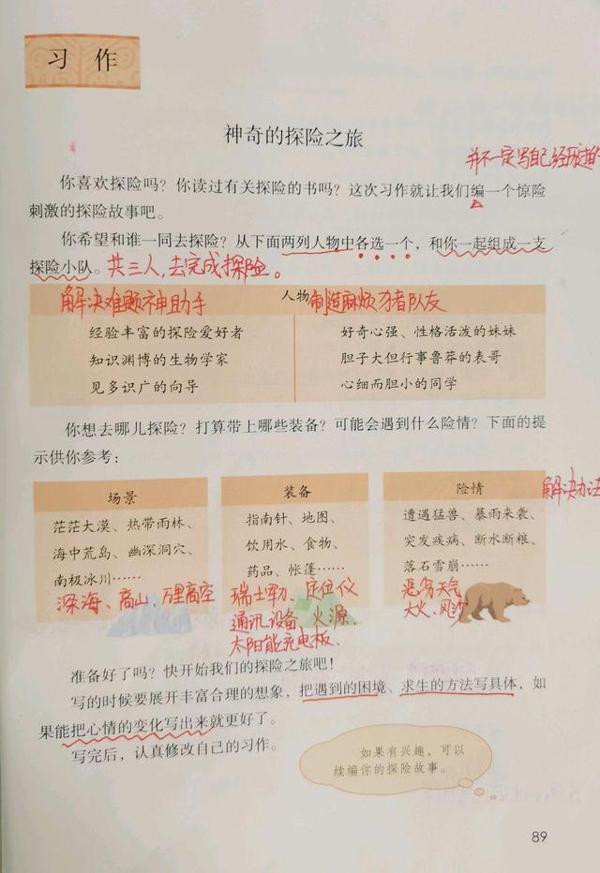 习 作
神奇的探险之旅
并不一定写自己经历过的
你喜欢探险吗？你读过有关探险的书吗？这次习作就让我们编一个惊险
刺激的探险故事吧。
你希望和谁一同去探险？从下面两列人物中各选一个，和你一起组成一支
探险小队。共三人，去完成探险。
人物
解决难题神助手
制造麻烦猪队友
经验丰富的探险爱好者
好奇心强、性格活泼的妹妹
知识渊博的生物学家
胆子大但行事鲁莽的表哥
见多识广的向导
心细而胆小的同学
你想去哪儿探险？打算带上哪些装备？可能会遇到什么险情？下面的提
示供你参考：
场景
茫茫大漠、热带雨林、
海中荒岛、幽深洞穴、
南极冰川……
深海、高山、万里高空
装备
指南针、地图、
饮用水、食物、
药品、帐篷……
瑞士军刀、定位仪
通讯设备、火源、
太阳能充电板、
险情
解决办法
遭遇猛兽、暴雨来袭、
突发疾病、断水断粮、
落石雪崩……
恶劣天气
大火、
准备好了吗？快开始我们的探险之旅吧！
写的时候要展开丰富合理的想象，把遇到的困境、求生的方法写具体，如
果能把心情的变化写出来就更好了。
写完后，认真修改自己的习作。
如果有兴趣，可以
续编你的探险故事。
89